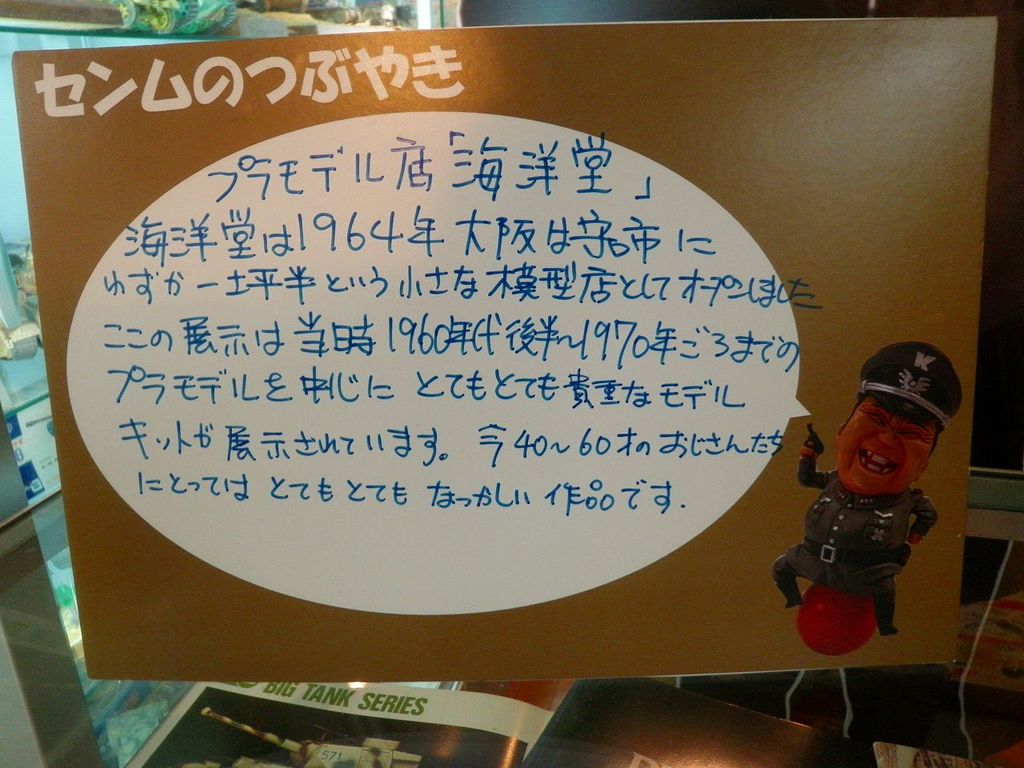 センムのつぶやき
プラモデル店「海洋堂」
海洋堂は1964年大阪は守口市に
わずか一土坪半という小さな模型店としてオープンしました
ここの展示は当時1960年代後半〜1970年ごろまでの
プラモデルを中心に とてもとても貴重なモデル
キットが展示されています。今40〜60才のおじさんたち
にとってはとてもとてもなつかしい作品です.
W
BIG TANK SERIES
571